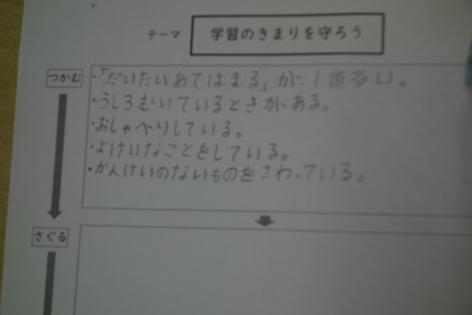 テーマ 学習のきまりを守ろう
つかむ
・「だいたいあてはまる」が1番多い。
・うしろむいているときがある。
・おしゃべりしている。
・よけいなことをしている。
・かんけいのないものをさわっている。
さぐる